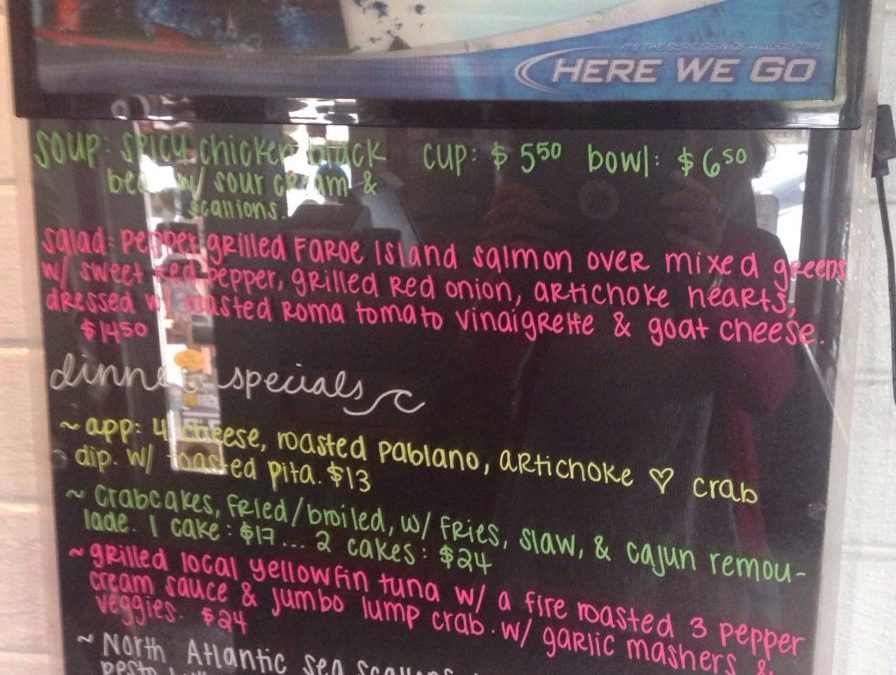 IT'S THE SURE SIGN OF A GOOD TIME
HERE WE GO
soup: spicy chicken black cup: $5.50 bowl: $6.50
bean w/ sour cream &
scallions.
salad: pepper grilled Faroe Island salmon over mixed greens
w/ sweet red pepper, grilled red onion, artichoke hearts,
dressed w/ roasted roma tomato vinaigrette & goat cheese.
$14.50
dinner specials
~ app: 4 cheese, roasted pablano, artichoke ♡ crab
dip. w/ toasted pita. $13
~ crabcakes, fried/broiled, w/ fries, slaw, & cajun remou-
lade. 1 cake: $17... 2 cakes: $24
~ grilled local yellowfin tuna w/ a fire roasted 3 pepper
cream sauce & jumbo lump crab. w/ garlic mashers &
veggies. $24
~ North Atlantic sea scallops
pesto